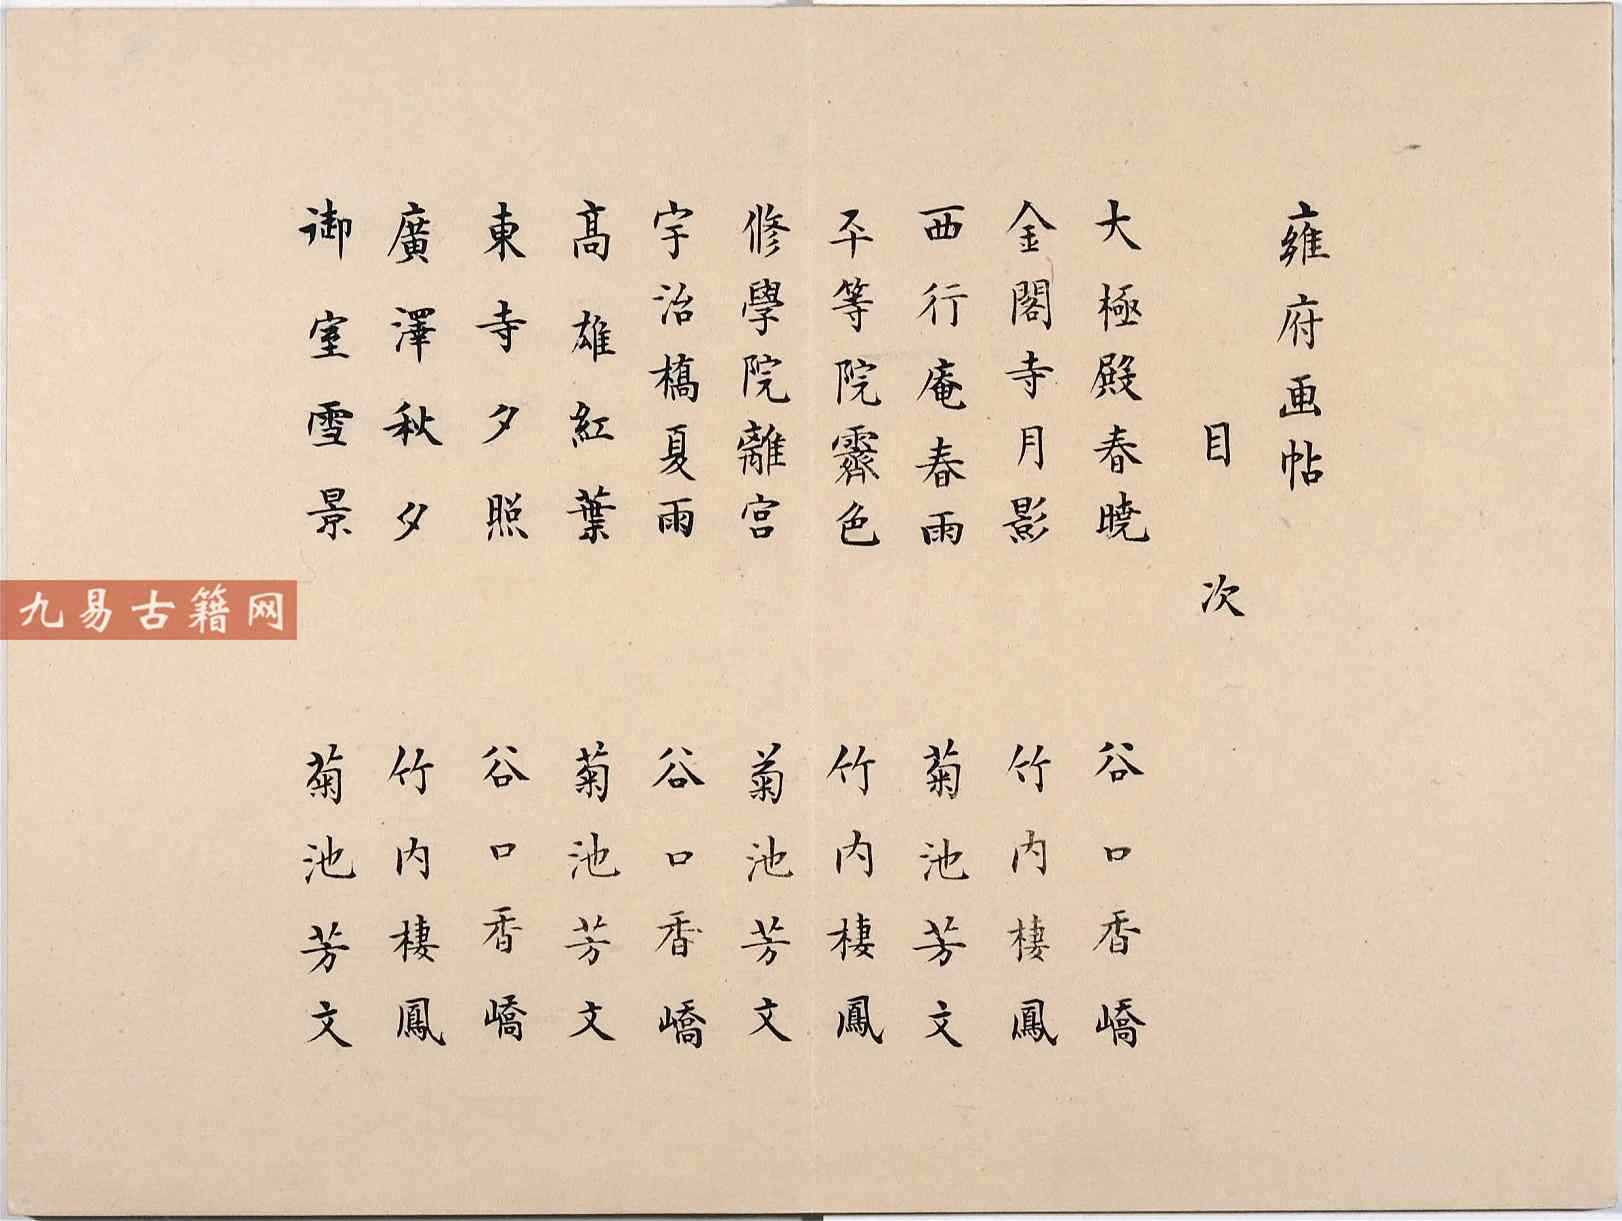 雍府画帖
目次
大極殿春曉 谷口香嶠
金閣寺月影 竹内棲鳳
西行庵春雨 菊池芳文
平等院霽色 竹内棲鳳
修學院離宮 菊池芳文
宇治橋夏雨 谷口香嶠
高雄紅葉 菊池芳文
東寺夕照 谷口香嶠
廣澤秋夕 竹内棲鳳
御室雪景 菊池芳文
九易古籍网